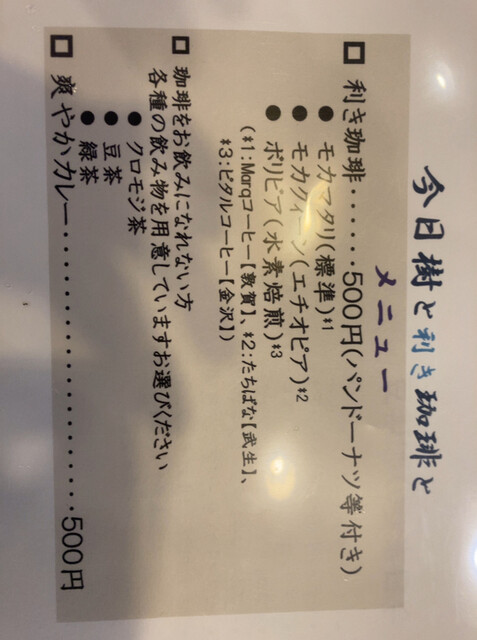 今日樹と利き珈琲と
メニュー
□ 利き珈琲‥‥‥500円(パンドーナツ等付き)
● モカマタリ(標準)*1
● モカクイーン(エチオピア)*2
● ボリビア(水素焙煎)*3
(*1:Marqコーヒー【敦賀】、*2:たちばな【武生】、
*3:ビタルコーヒー【金沢】)
□ 珈琲をお飲みになれない方
各種の飲み物を用意していますお選びください
● クロモジ茶
● 豆茶
● 緑茶
□ 爽やかカレー‥‥‥‥‥‥‥‥‥500円